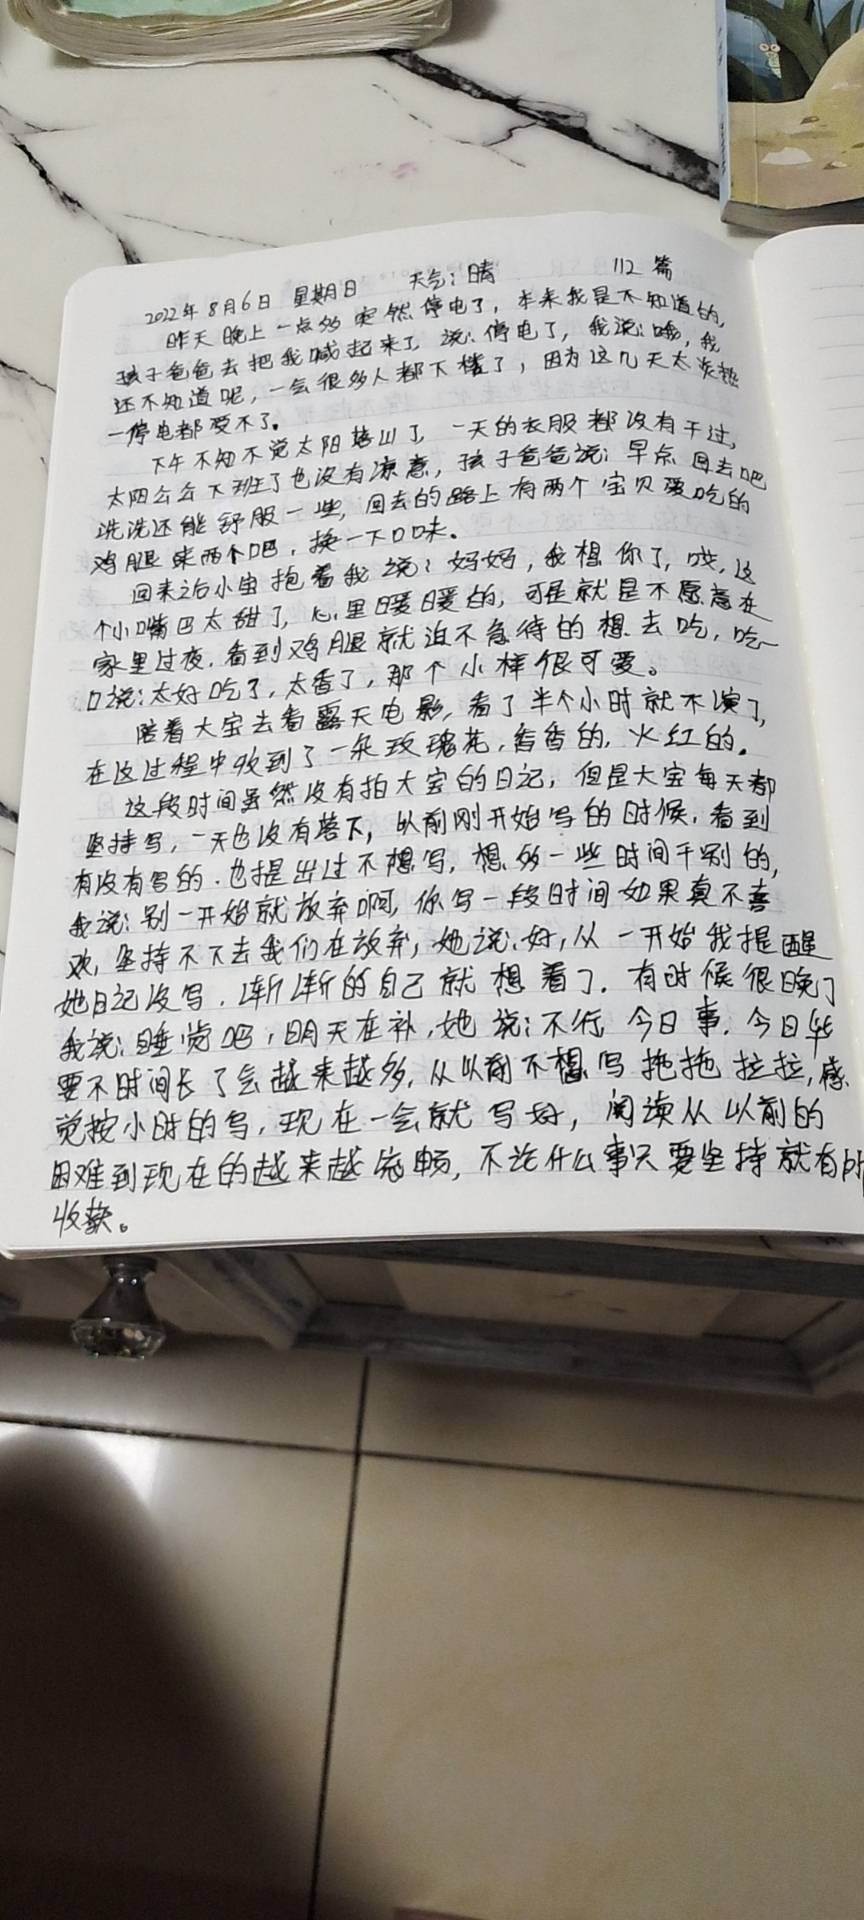 2022年8月6日 星期日 天气:晴 112篇
昨天晚上一点多突然停电了,本来我是不知道的,
孩子爸爸去把我喊起来了,说:停电了,我说:哦,我
还不知道呢,一会很多人都下楼了,因为这几天太炎热
一停电都受不了。
下午不知不觉太阳落山了,一天的衣服都没有干过,
太阳公公下班了也没有凉意,孩子爸爸说:早点回去吧
洗洗还能舒服一些,回去的路上有两个宝贝爱吃的
鸡腿来两个吧,换一下口味。
回来之后小宝抱着我说:妈妈,我想你了,哎,这
个小嘴巴太甜了,心里暖暖的,可是就是不愿意在
家里过夜,看到鸡腿就迫不急待的想去吃,吃一
口说:太好吃了,太香了,那个小样很可爱。
陪着大宝去看露天电影,看了半个小时就不演了,
在这过程中收到了一朵玫瑰花,香香的,火红的。
这段时间虽然没有拍大宝的日记,但是大宝每天都
坚持写,一天也没有落下,以前刚开始写的时候,看到
有没有写的.也提出过不想写,想多一些时间干别的,
我说:别一开始就放弃啊,你写一段时间如果真不喜
欢,坚持不下去我们在放弃,她说:好,从一开始我提醒
她日记没写,渐渐的自己就想着了.有时候很晚了
我说:睡觉吧,明天在补,她说:不行今日事,今日毕
要不时间长了会越来越多,从以前不想写拖拖拉拉,感
觉按小时的写,现在一会就写好,阅读从以前的
困难到现在的越来越流畅,不论什么事只要坚持就有所
收获。